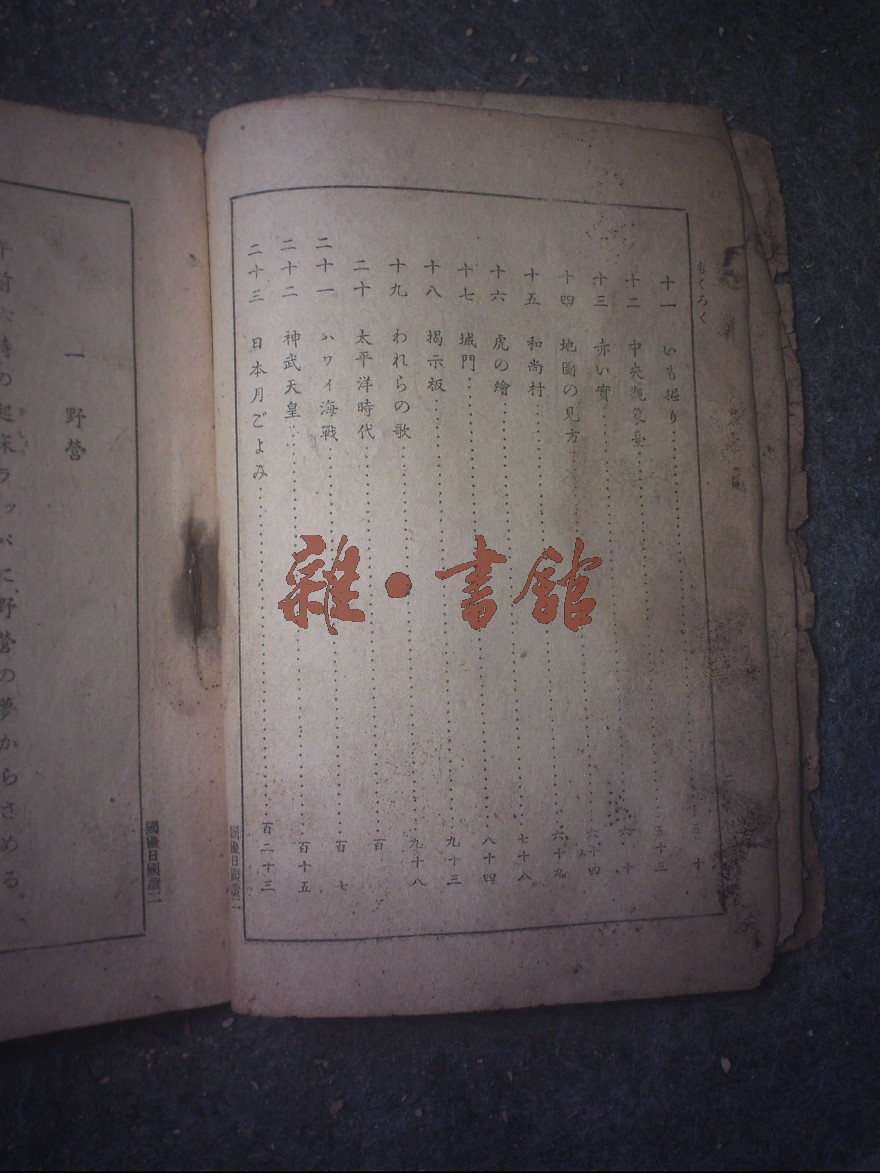 もくろく
十一 いも掘り 五十
十二 中央觀象臺 五十三
十三 赤い實 六十
十四 地圖の見方 六十四
十五 和尚村 六十九
十六 虎の繪 七十八
十七 城門 八十四
十八 揭示板 九十三
十九 われらの歌 九十八
二十 太平洋時代 百
二十一 ハワイ海戰 百七
二十二 神武天皇 百十五
二十三 日本月ごよみ 百二十三
雜·書館
一 野營
午前六時の起床ラッパに、野營の夢からさめる。
きしやう